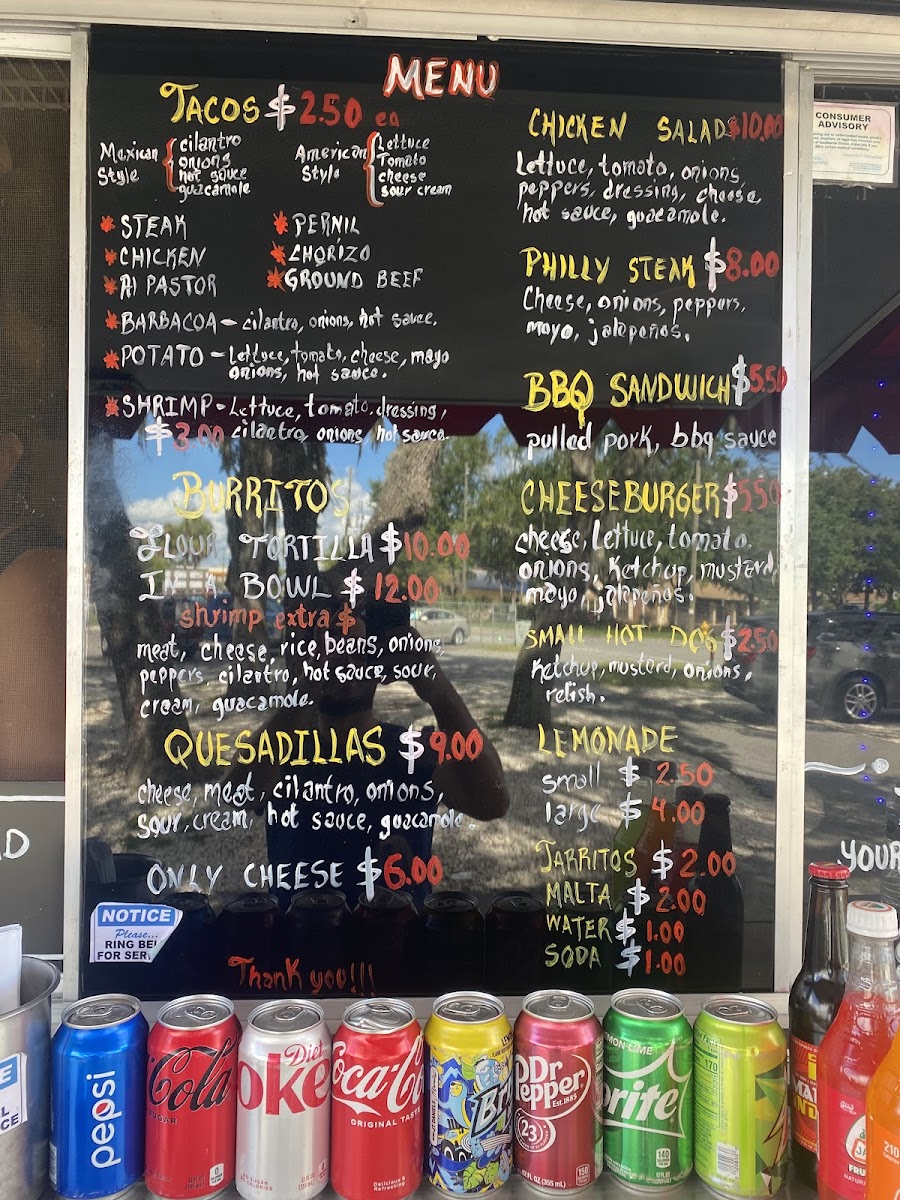 MENU
TACOS $2.50 ea
Mexican Style
cilantro
onions
hot sauce
guacamole
American Style
Lettuce
Tomato
cheese
sour cream
STEAK
CHICKEN
Al PASTOR
PERNIL
CHORIZO
GROUND BEEF
BARBACOA - cilantro, onions, hot sauce.
POTATO - Lettuce, tomato, cheese, mayo
onions, hot sauce.
SHRIMP - Lettuce, tomato, dressing,
$3.00 cilantro, onions, hot sauce.
BURRITOS
FLOUR TORTILLA $10.00
IN A BOWL $12.00
shrimp extra $
meat, cheese, rice, beans, onions,
peppers, cilantro, hot sauce, sour,
cream, guacamole.
QUESADILLAS $9.00
cheese, meat, cilantro, onions,
sour, cream, hot sauce, guacamole.
ONLY CHEESE $6.00
NOTICE
Please...
RING BEL
FOR SERV
Thank you!!!
CHICKEN SALAD $10.00
Lettuce, tomato, onions,
peppers, dressing, cheese,
hot sauce, guacamole.
PHILLY STEAK $8.00
Cheese, onions, peppers,
mayo, jalapeños.
BBQ SANDWICH $5.50
pulled pork, bbq sauce
CHEESEBURGER $5.50
cheese, Lettuce, tomato,
onions, Ketchup, mustard,
mayo, jalapeños.
SMALL HOT DOG $2.50
Ketchup, mustard, onions,
relish.
LEMONADE
small $2.50
large $4.00
JARRITOS $2.00
MALTA $2.00
WATER $1.00
SODA $1.00
CONSUMER
ADVISORY
YOUR
pepsi
Cola
Diet
oke
Coca-Co
ORIGINAL TASTE
Br
Dr
Pepper
Est. 1885
23
12 FL OZ (355 mL)
150
LEMON-LIME
prite
140
170
210